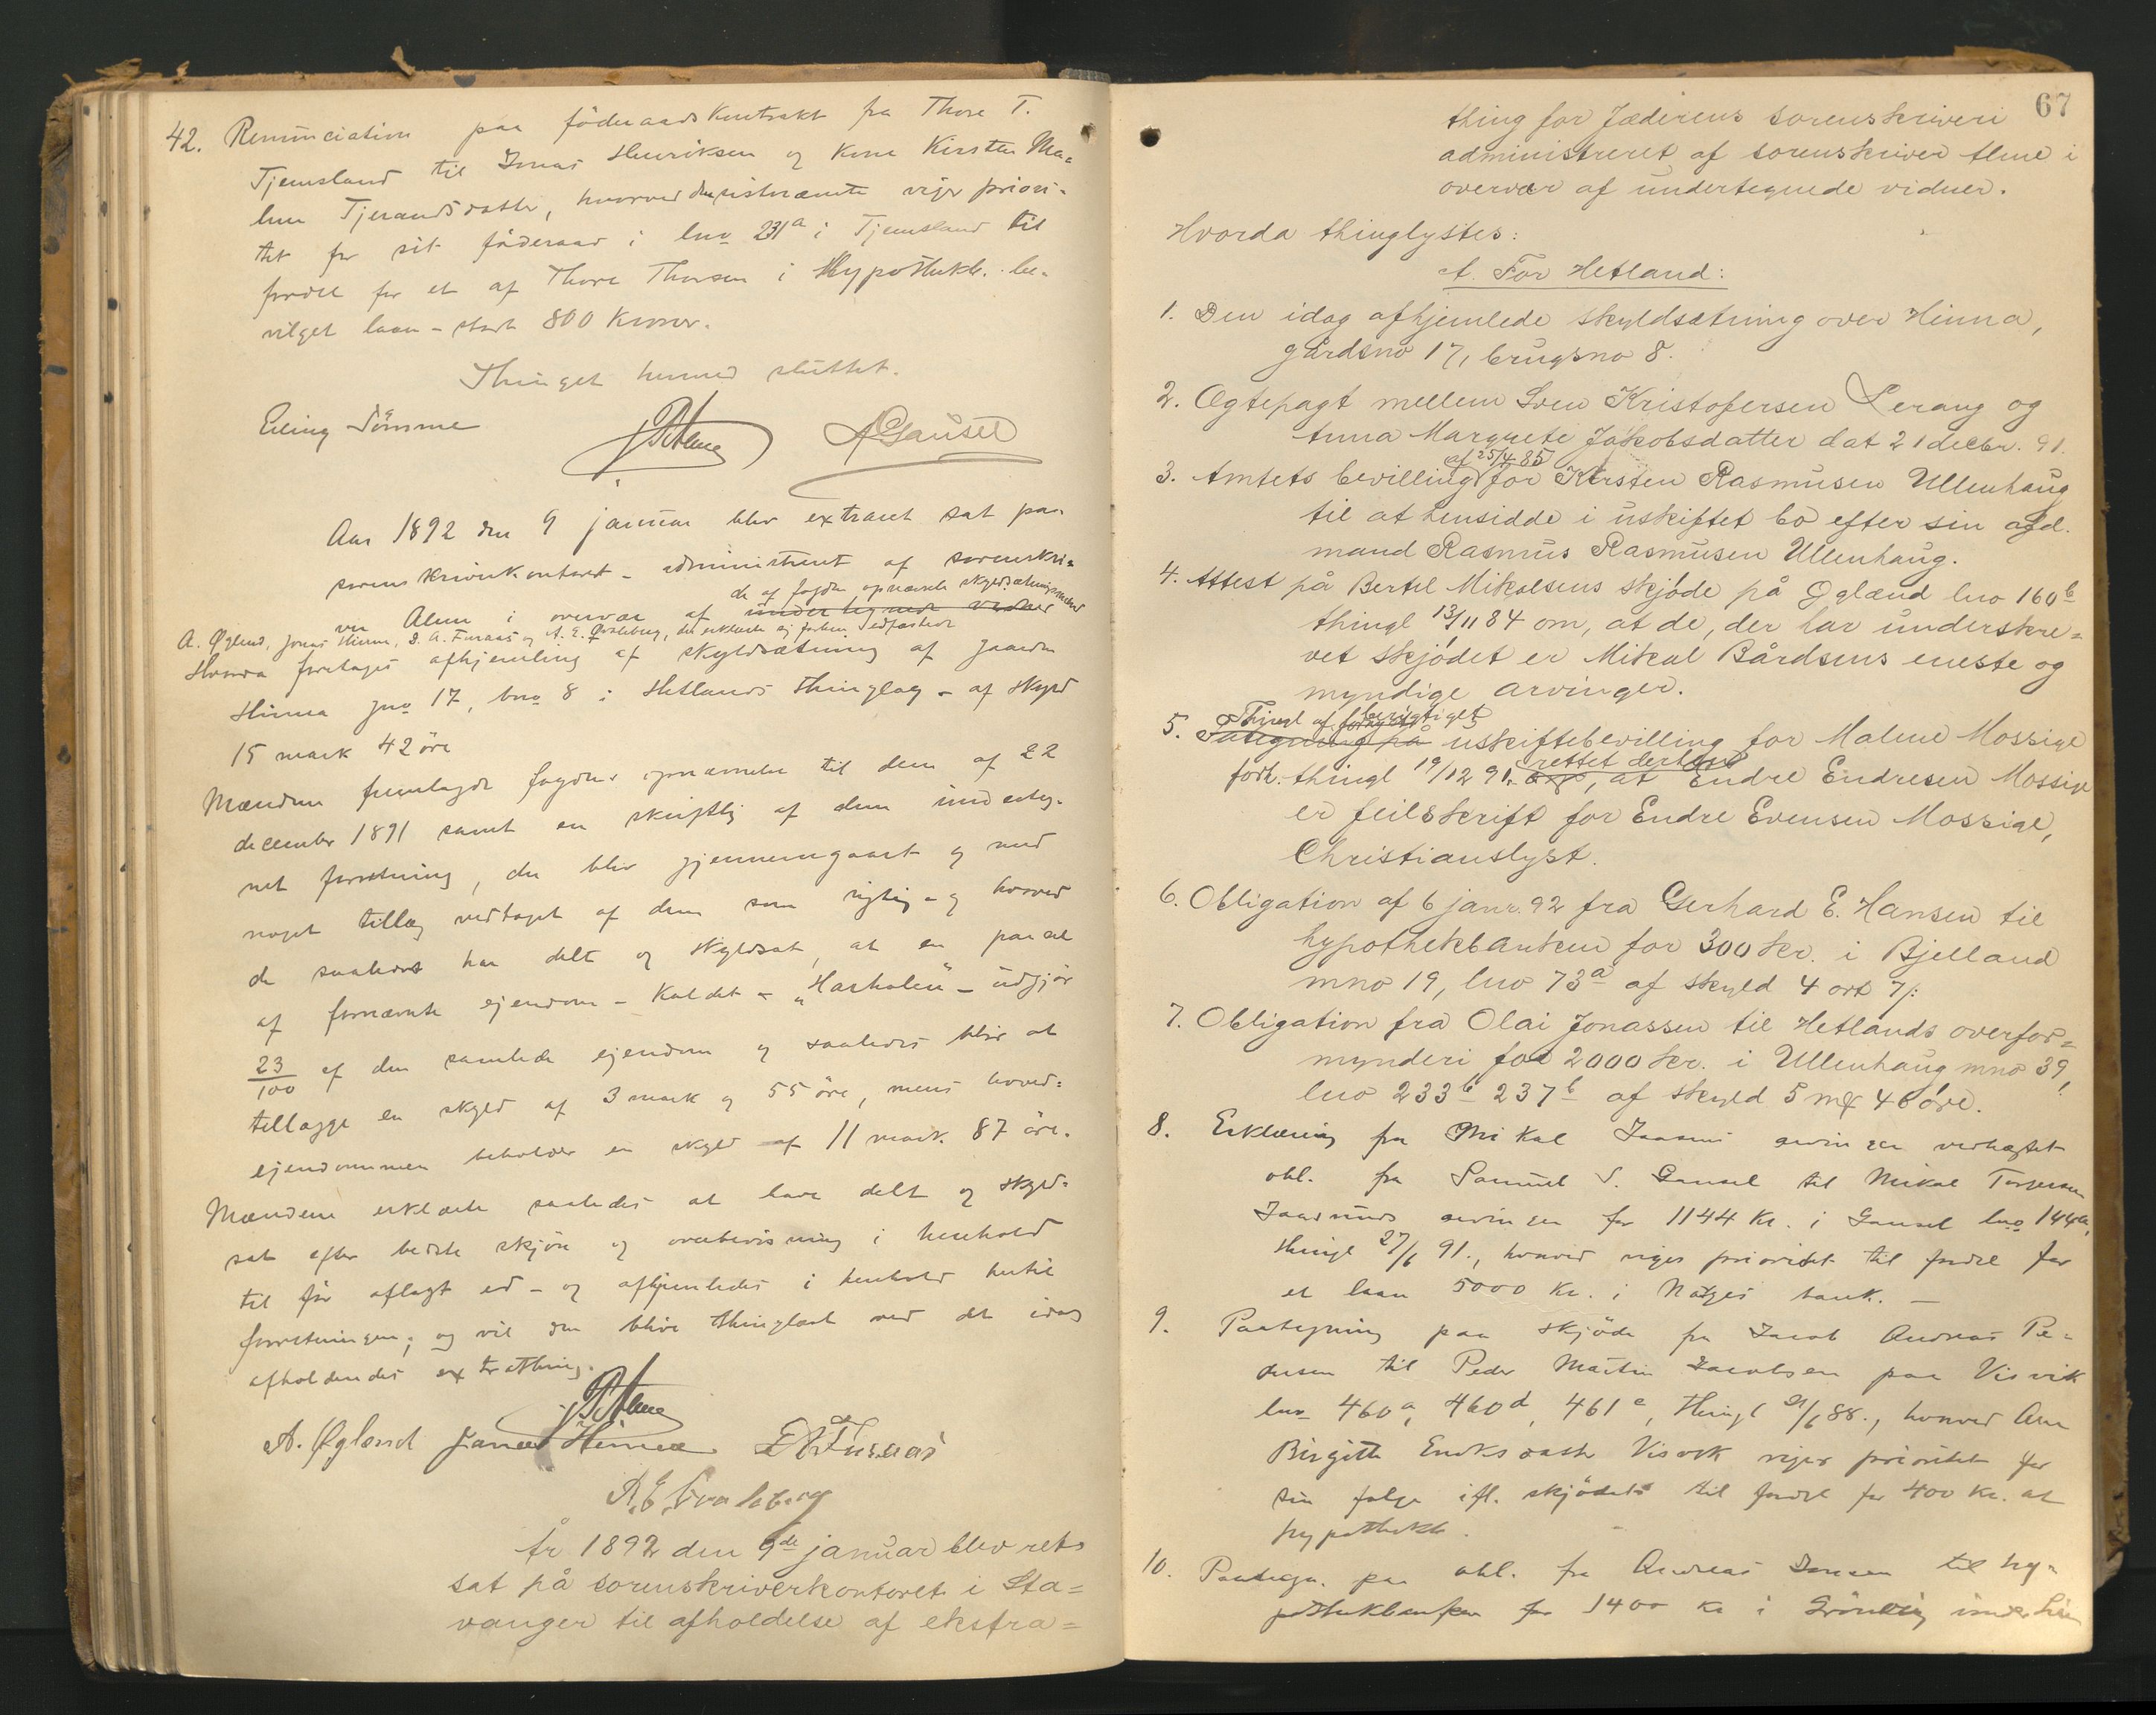 42. Renunciation paa föderaadskontrakt fra Thore T.
Tjemsland til Jonas Henriksen og kone Kirsten Ma=
lene Tjerandsdatter, hvorved den sistnævnte viger priori-
tet for sit föderaad i lno 231a i Tjemsland til
fordel for et af Thore Thorsen i Hypothekb. be-
vilget laan - stort 800 kroner.
Thinget hermed sluttet.
Eiling Sömme
A Gausel
Aar 1892 den 9 januar blev extraret sat paa
sorenskriverkontoret - administreret af sorenskri=
de af fogden opnævnte skyldsætningsmænd
ver Alme i overvær af undertegnede vidner
A. Øglend, Jonas Hinna, D. A. Furaas og A. E. Qvaleberg, der erklærte ej forhen edfæstede
Hvorda foretoges afhjemling af skyldsætning af gaarden
Hinna gno 17, bno 8 i Hetlands thinglag - af skyld
15 mark 42 öre
Mændene fremlagde fogdens opnævnelse til dem af 22
december 1891 samt en skriftlig af dem underteg-
net forretning, der blev gjennemgaaet og med
noget tillæg vedtaget af dem som rigtig - og hvorved
de saaledes har delt og skyldsat, at en parcel
af fornævnte ejendom - kaldet - "Harholen" - udgjör
23/100 af den samlede ejendom og saaledes blir at
tillægge en skyld af 3 mark og 55 öre, mens hoved=
ejendommen beholder en skyld af 11 mark 87 öre.
Mændene erklærte saaledes at have delt og skyld=
sat efter bedste skjön og overbevisning i henhold
til för aflagt ed - og afhjemledes i henhold hertil
forretningen; og vil den blive thinglæst ved det idag
afholdendes extrathing.
A. Øglend Jonas Hinna D A Furaas
A. E. Qvaleberg
År 1892 den 9de januar blev ret
sat på sorenskriverkontoret i Sta=
vanger til afholdelse af ekstra=
67
thing for Jæderens sorenskriveri
administreret af sorenskriver Alme i
overvær af undertegnede vidner.
Hvorda thinglystes:
A. For Hetland:
1. Den idag afhjemlede skyldsætning over Hinna,
gårdsno 17, brugsno 8.
2. Ægtepagt mellem Sven Kristofersen Lerang og
Anna Margrete Jakobsdatter dat 21 decbr. 91.
af 25/4 85
3. Amtets bevilling for Kirsten Rasmusen Ullenhaug
til at hensidde i uskiftet bo efter sin afd.
mand Rasmus Rasmusen Ullenhaug.
4. Attest på Bertel Mikalsens skjöde på Øglænd lno 160b
thingl 13/11 84 om, at de, der har underskre=
vet skjödet er Mikal Bårdsens eneste og
myndige arvinger.
Thingl af berigtiget
5. Påtegning på uskiftebevilling for Malene Mossige
rettet derhen
forh. thingl 19/12 91, at Endre Endresen Mossige
er feilskrift for Endre Evensen Mossige,
Christianslyst.
6. Obligation af 6 janr. 92 fra Gerhard E. Hansen til
hypothekbanken for 300 kr. i Bjelland
mno 19, lno 73a af skyld 4 ort 7/:
7. Obligation fra Olai Jonassen til Hetlands overfor=
mynderi for 2000 kr. i Ullenhaug mno 39,
lno 233b 237b af skyld 5 mk 46 öre.
8. Erklæring fra Mikal Jaasunds arvinger vedhæftet
obl. fra Samuel S. Gausel til Mikal Torgersen
Jaasunds arvinger for 1144 kr. i Gausel lno 144a,
thingl 27/6 91., hvorved viges prioritet til fordel for
et laan 5000 kr. i Norges bank. -
9. Paategning paa skjöde fra Jacob Andreas Pe=
dersen til Peder Martin Jacobsen paa Visvik
lno 460a, 460d, 461c, thingl 21/6 88., hvorved Ane
Birgitte Eriksdatter Visvik viger prioritet for
sin folge ifl. skjödets til fordel for 400 kr. at
hypothekb.
10. Paategn. paa obl. fra Andreas Jonsen til hy=
pothekbanken for 1400 kr i Grönvig under